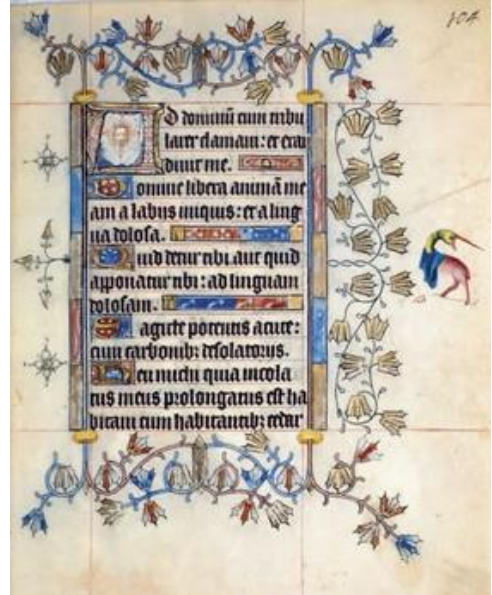 104
AD dominū cum tribu
larer clamaui: et exau
diuit me.
Domine libera animā me
am a labiis iniquis: et a ling
ua dolosa.
Quid detur tibi aut quid
apponatur tibi: ad linguam
dolosam.
Sagitte potentis acute:
cum carbonibꝫ desolatoriis.
Heu michi quia incola
tus meus prolongatus est ha
bitaui cum habitantibꝫ cedar